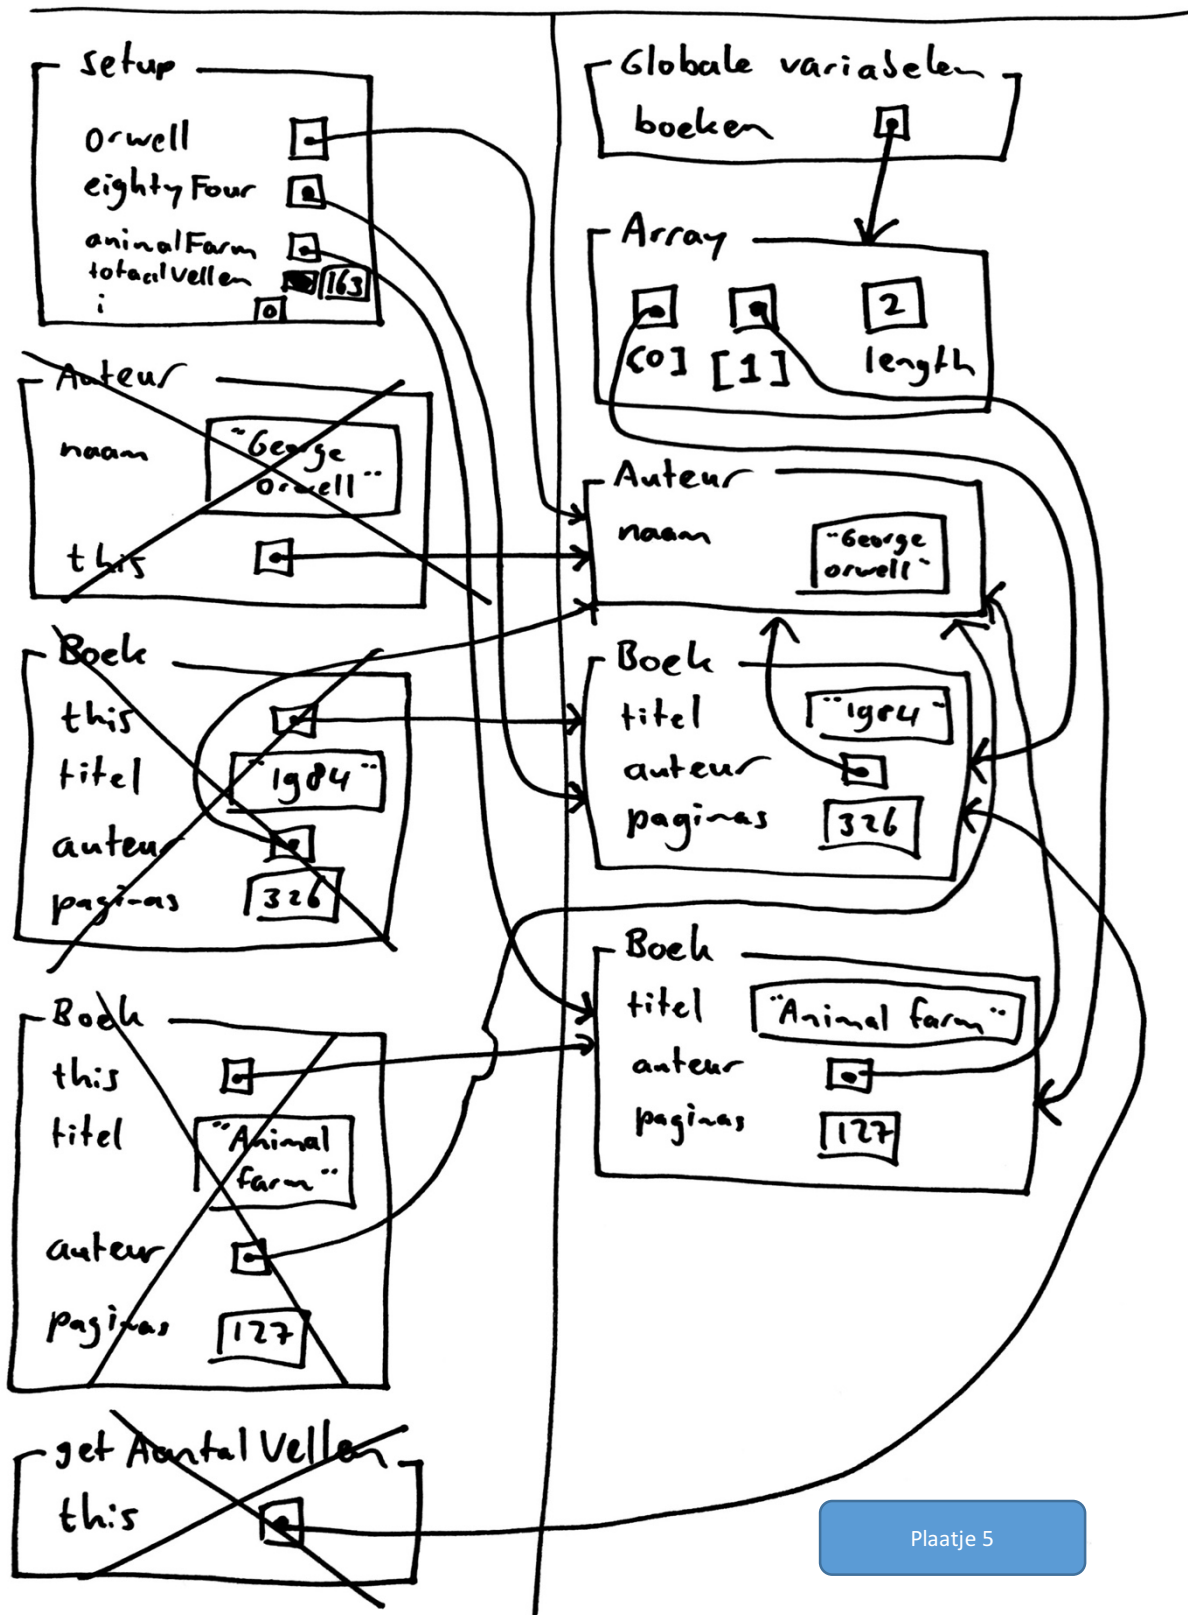 setup
orwell
eightyFour
animalFarm
totaalVellen 163
i 0
Auteur
naam "George
orwell"
this
Boek
this
titel "1984"
auteur
paginas 326
Boek
this
titel "Animal
farm"
auteur
paginas 127
get Aantal Vellen
this
Globale variabelen
boeken
Array
2
[0] [1] length
Auteur
naam "George
orwell"
Boek
titel "1984"
auteur
paginas 326
Boek
titel "Animal farm"
auteur
paginas 127
Plaatje 5